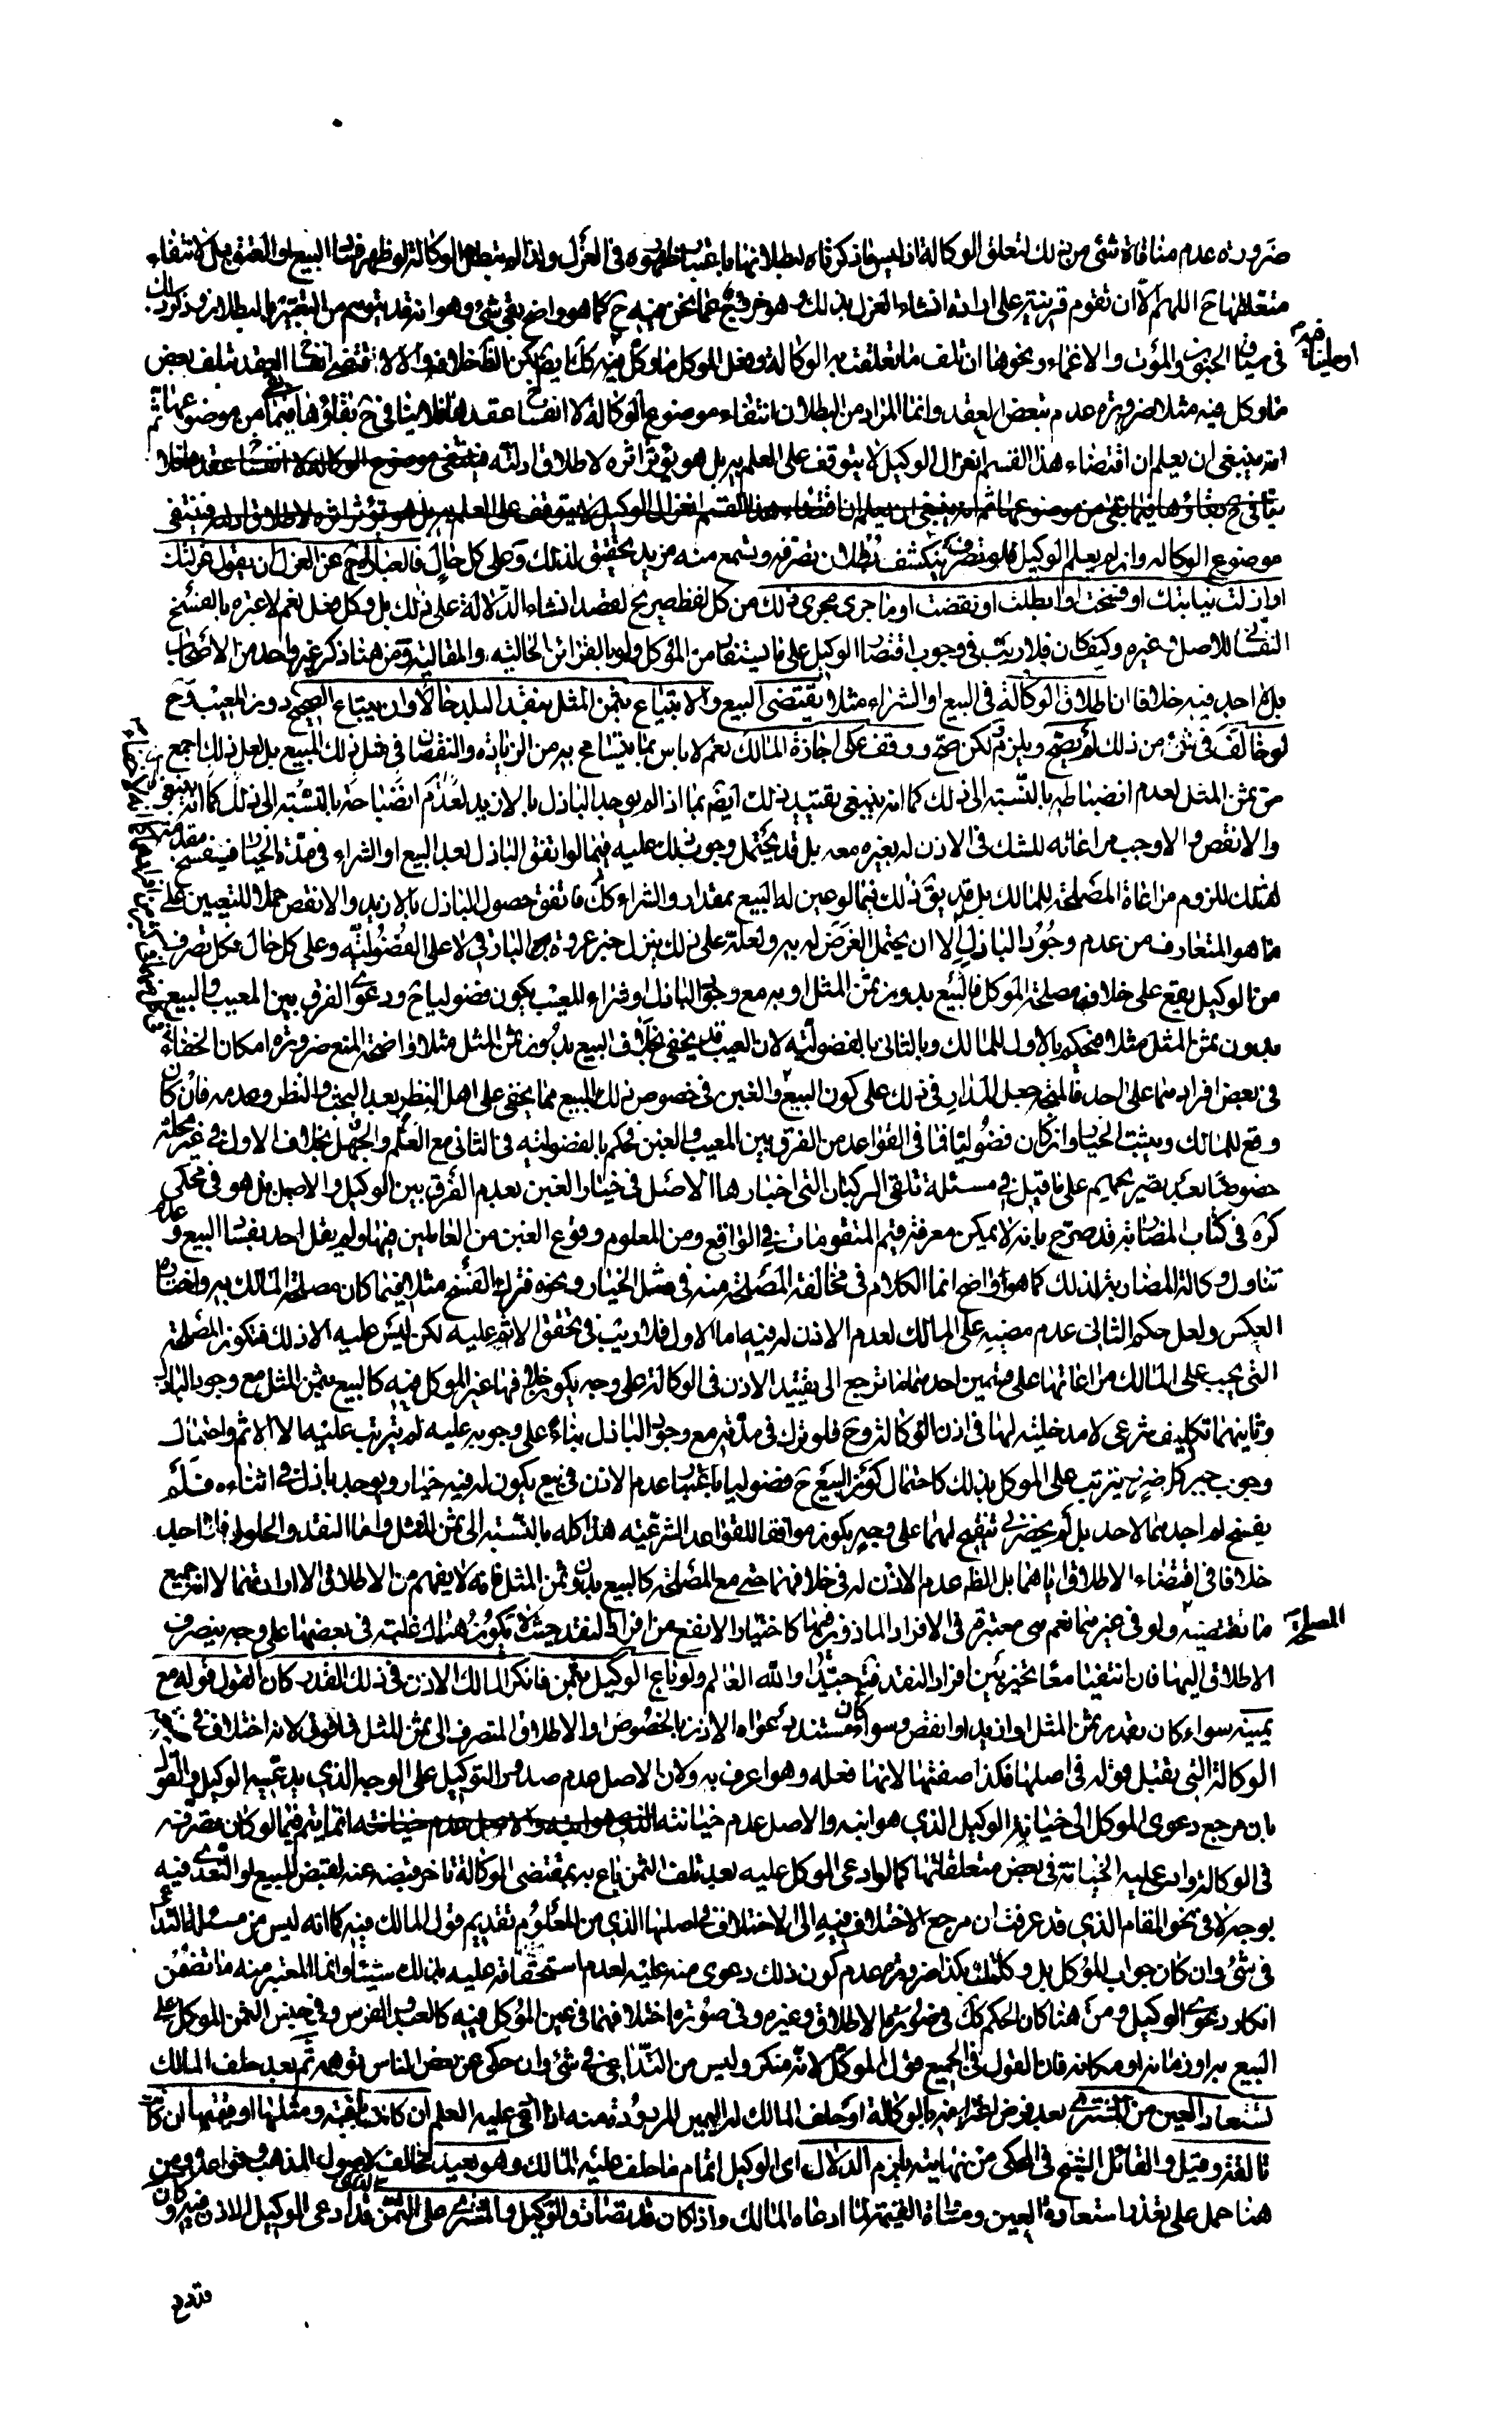 ضرورة عدم منافاة شئ من ذلك لتعلق الوكالة اذ ليس ما ذكرناه لبطلانها باعتبار ظهوره في العزل ولذا لم تبطل الوكالة لو ظهر فساد البيع او العتق بل لانتفاء
متعلقها ح اللهم الا ان تقوم قرينة على ارادة انشاء العزل بذلك وهو خروج عما نحن فيه ح كما هو واضح بقي شئ وهو انه قد يتوهم من التعبير بالبطلان
في الجنون والموت والاغماء ونحوها ان تلف ما تعلقت به الوكالة وفعل الموكل ما وكل فيه كك ايضا لكن الظ خلافه والا لاقتضى انفساخ العقد بتلف بعض
ما وكل فيه مثلا ضرورة عدم تبعض العقد وانما المراد من البطلان انتفاء موضوع الوكالة لا انفساخ عقدها فلا ينافي ح بقاؤها فيما بقي من موضوعها ثم
انه ينبغي ان يعلم ان اقتضاء هذا القسم انعزال الوكيل لا يتوقف على العلم به بل هو يؤثر اثره لاطلاق ادلته فينتفي موضوع الوكالة لا انفساخ عقدها فلا
ينافي ح بقاؤها فيما بقي من موضوعها ثم انه ينبغي ان يعلم ان اقتضاء هذا القسم انعزال الوكيل لا يتوقف على العلم به بل هو يؤثر اثره لاطلاق ادلته فينتفي
موضوع الوكالة وان لم يعلم الوكيل فلو تصرف ينكشف بطلان تصرفه وتسمع منه مزيد تحقيق لذلك وعلى كل حال فالعبارة ح عن العزل ان يقول عزلتك
او ازلت نيابتك او فسخت او ابطلت او نقضت او ما جرى مجرى ذلك من كل لفظ صريح لقصد انشاء الدلالة على ذلك بل وكل فعل نعم لا عبرة بالفسخ
النفساني للاصل وغيره وكيف كان فلا ريب في وجوب اقتصار الوكيل على ما يستفاد من الموكل ولو بالقرائن الحالية والمقالية ومن هنا ذكر غير واحد من الاصحاب
بل لم اجد فيه خلافا ان اطلاق الوكالة في البيع او الشراء مثلا يقتضي البيع والابتياع بثمن المثل بنقد البلد حالا وان يبتاع الصحيح دون المعيب وح
لو خالف في شئ من ذلك لم يصح ويلزم لكن صح ووقف على اجازة المالك نعم لا باس بما يتسامح به من الزيادة والنقصان في مثل ذلك المبيع بل لعل ذلك اجمع
من ثمن المثل لعدم انضباطه بالنسبة الى ذلك كما انه ينبغي تقييد ذلك ايضا بما اذا لم يوجد الباذل بالازيد لعدم انضباطه بالنسبة الى ذلك كما انه ينبغي
والانقص والا وجب مراعاته للشك في الاذن له بغيره معه بل قد يحتمل وجوب ذلك عليه فيما لو اتفق الباذل بعد البيع او الشراء في مدة الخيار فيفسخ
لذلك للزوم مراعاة المصلحة للمالك بل قد يق ذلك فيما لو عين له البيع بمقدار والشراء كك فاتفق حصول الباذل بالازيد والانقص حملا للتعيين على
ما هو المتعارف من عدم وجود الباذل الا ان يحتمل الغرض له به ولعله على ذلك ينزل خبر عروة البارقي لا على الفضولية وعلى كل حال فكل تصرف
من الوكيل يقع على خلاف مصلحة الموكل كالبيع بدون ثمن المثل او به مع وجود الباذل او شراء المعيب يكون فضوليا ح ودعوى الفرق بين المعيب والبيع
بدون ثمن المثل مثلا فيحكم بالاول للمالك وبالثاني بالفضولية لان العيب قد يخفى بخلاف البيع بدون ثمن المثل مثلا واضحة المنع ضرورة امكان الخفاء
في بعض افراد منهما على احد فالمتجه جعل المدار في ذلك على كون البيع والغبن في خصوص ذلك المبيع مما يخفى على اهل النظر بعد البحث والنظر وعدمه فان كان
وقع للمالك ويثبت الخيار وان كان فضوليا فما في القواعد من الفرق بين المعيب والغبن فحكم بالفضولية في الثاني مع العلم والجهل بخلاف الاول في غير محله
خصوصا بعد تصريحهم على ما قيل في مسئلة تلقي الركبان التي اخبارها الاصل في خيار الغبن بعدم الفرق بين الوكيل والاصيل بل هو في محكي
كره في كتاب المضاربة قد صرح بانه لا يمكن معرفة قيم المتقومات في الواقع ومن المعلوم وقوع الغبن من العاملين فيها ولم يقل احد بفساد البيع وعدم
تناول وكالة المضاربة لذلك كما هو واضح انما الكلام في مخالفة المصلحة منه في مثل الخيار ونحوه فترك الفسخ مثلا فيما كان مصلحة المالك به واختاره
العكس ولعل حكم الثاني عدم مضيه على المالك لعدم الاذن له فيه اما الاول فلا ريب في تحقق الاثم عليه لكن ليس عليه الا ذلك فتكون المصلحة
التي يجب على المالك مراعاتها على قسمين احدهما ما ترجع الى تقييد الاذن في الوكالة على وجه يكون خلافها غير الموكل فيه كالبيع بثمن المثل مع وجود الباذل
وثانيهما تكليف شرعي لا مدخلية لها في اذن الوكالة وح فلو ترك في مدته مع وجود الباذل بناء على وجوبه عليه لم يترتب عليه الا الاثم واحتمال
وجوب جبر كل ضرر يترتب على الموكل بذلك كاحتمال كون البيع ح فضوليا باعتبار عدم الاذن في بيع يكون له فيه خيار ويوجد باذل في اثناءه فلم
يفسخ لم اجدهما لاحد بل لم يحضرني تنقيح لهما على وجه يكون موافقا للقواعد الشرعية هذا كله بالنسبة الى ثمن المثل واما النقد والحلول فلا اجد
خلافا في اقتضاء الاطلاق اياهما بل الظ عدم الاذن له في خلافهما حتى مع المصلحة كالبيع بدون ثمن المثل فانه لا يفهم من الاطلاق الا ارادتهما لا ان جميع
ما تقتضيه المصلحة ولو في غيرهما نعم هي معتبرة في الافراد الماذون فيها كاختيار الانفع من افراد النقد حيث لا يكون هناك غلبة في بعضها على وجه ينصرف
الاطلاق اليها فان انتفيا معا تخير بين افراد النقد فتح جيدا والله العالم ولو باع الوكيل بثمن فانكر المالك الاذن في ذلك القدر كان القول قوله مع
يمينه سواء كان بقدر ثمن المثل او ازيد او انقص وسواء كان مستند دعواه الاذن بالخصوص او الاطلاق المنصرف الى ثمن المثل فلا فرق لانه اختلاف في
الوكالة التي يقبل قوله في اصلها فكذا صفتها لانها فعله وهو اعرف به ولان الاصل عدم صدور التوكيل على الوجه الذي يدعيه الوكيل والقول
بان مرجع دعوى الموكل الى خيانة الوكيل الذي هو امينه والاصل عدم خيانته الذي هو امينه والاصل عدم خيانته انما يتم فيما لو كان تصرفه
في الوكالة وادعى عليه الخيانة في بعض متعلقاتها كما لو ادعى الموكل عليه بعد تلف الثمن باع به بمقتضى الوكالة تاخر قبضه عنه لقبض المبيع او التعدي فيه
بوجه لا في نحو المقام الذي قد عرفت ان مرجع الاختلاف فيه الى الاختلاف في اصلها الذي من المعلوم تقديم قول المالك فيه كما انه ليس من مسئلة التداعي
في شئ وان كان جواب الموكل بل وكلتك بكذا ضرورة عدم كون ذلك دعوى منه عليه لعدم استحقاقه عليه بذلك شيئا وانما المعتبر منه ما تضمن
انكار دعوى الوكيل ومن هنا كان الحكم كك في صورتي الاطلاق وغيره وفي صورة اختلافهما في عين الموكل فيه كالعبد والفرس وفي جنس الثمن الموكل على
البيع به او زمانه او مكانه فان القول في الجميع قول الموكل لانه منكر وليس من التداعي في شئ وان حكي عن بعض الناس توهمه ثم بعد حلف المالك
تستعاد العين من المشتري بعد فرض اعترافه بالوكالة او حلف المالك له اليمين المردودة منه اذا ادعي عليه العلم ان كانت باقية ومثلها او قيمتها ان كانت
تالفة وقيل والقائل الشيخ في المحكي من نهايته يلزم الدلال اي الوكيل اتمام ما حلف عليه المالك وهو بعيد مخالف لاصول المذهب وقواعده ومن
هنا حمل على تعذر استعادة العين ومساواة القيمة لما ادعاه المالك واذا كان قد تصادق الوكيل والمشتري على الثمن الذي قد ادعى الوكيل الاذن فيه وكان